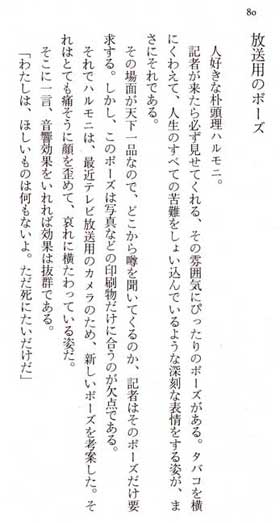 80
放送用のポーズ
人好きな朴頭理ハルモニ。
記者が来たら必ず見せてくれる、その雰囲気にぴったりのポーズがある。タバコを横
にくわえて、人生のすべての苦難をしょい込んでいるような深刻な表情をする姿が、ま
さにそれである。
その場面が天下一品なので、どこから噂を聞いてくるのか、記者はそのポーズだけ要
求する。しかし、このポーズは写真などの印刷物だけに合うのが欠点である。
それでハルモニは、最近テレビ放送用のカメラのため、新しいポーズを考案した。そ
れはとても痛そうに顔を歪めて、哀れに横たわっている姿だ。
そこに一言、音響効果をいれれば効果は抜群である。
「わたしは、ほしいものは何もないよ。ただ死にたいだけだ」